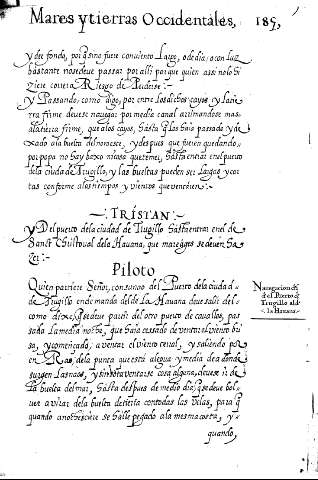 Mares y tierras Occidentales, 185,
y de fondo, porq̃ sino fuere con viento Largo, o de dia, o con luz
bastante no se deve passar por alli porque quien assi no lo hi
ziere correra Riesgo de Perderse:~
y Passando, como digo, por entre los dichos cayos y la tie
rra firme deve se navegar por media canal arrimandose mas
a la tierra firme, que a los cayos, hasta q̃ los haia passado y de
xado a la buelta del noroeste, y despues que fueren quedando
por popa no hay baxo ni cosa que temer, hasta entrar en el puerto
de la ciudad de Truxillo, y las bueltas pueden ser Largas y cor
tas conforme a los tiempos y vientos que vencieren:~
~: TRISTAN :~
y Del puerto de la ciudad de Trugillo hasta entrar en el de
Sanct Christoval de la Havana, que mareages se deven ha
zer:~
Piloto
Quien partiere Señor, con su nao del Puerto de la ciudad
de Trugillo en demanda del de La Havana deve salir del
como dixe, y se deve partir del otro punto de cavallos, pas
sada La media noche, que haia cessado de ventar el viento bri
sa, y començado, a ventar el viento terral, y saliendo por
en Rao, de la punta que esta alegua y media de adonde
surgen Las naos, y sin barloventarse cosa alguna, devese ir de
la buelta del mar, hasta despues de medio dia, q̃ se deve bol
ver a virar de la buelta de tierra con todas las velas, para q̃
quando anochesciere se halle pegado a la mesma costa, y
quando,
Navegacion de
sde el Puerto de
Trugillo al de
la Havana